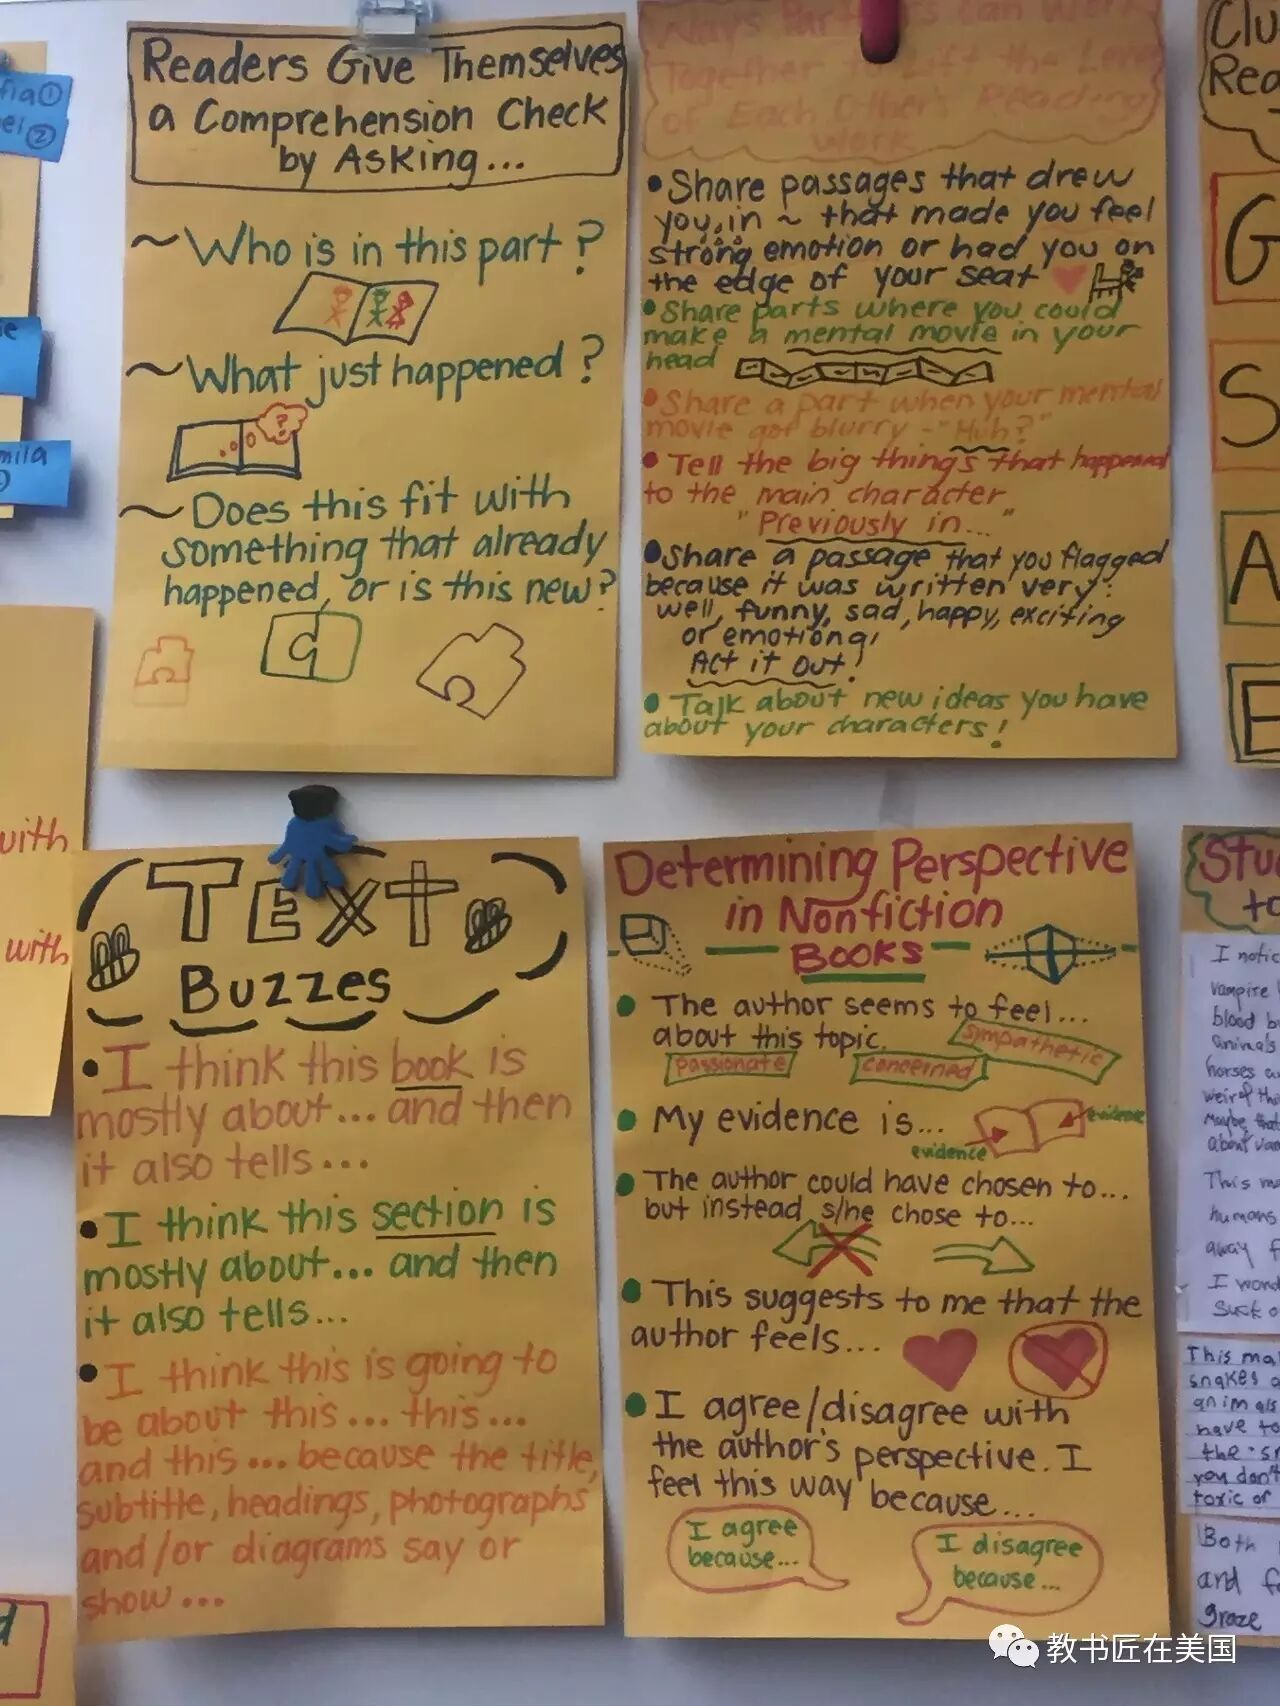 Readers Give Themselves
a Comprehension Check
by Asking...
~ Who is in this part?
~ What just happened?
?
~ Does this fit with
something that already
happened, or is this new?
Ways Partners can work
Together to Lift the Level
of Each Other's Reading
Work
• Share passages that drew
you in ~ that made you feel
strong emotion or had you on
the edge of your seat
• Share parts where you could
make a mental movie in your
head
• Share a part when your mental
movie got blurry - "Huh?"
• Tell the big things that happened
to the main character
"Previously in..."
• Share a passage that you flagged
because it was written very:
well, funny, sad, happy, exciting
or emotional
Act it out!
• Talk about new ideas you have
about your characters!
TEXT
Buzzes
• I think this book is
mostly about... and then
it also tells...
• I think this section is
mostly about... and then
it also tells...
• I think this is going to
be about this... this...
and this... because the title,
subtitle, headings, photographs
and/or diagrams say or
show...
Determining Perspective
in Nonfiction
BOOKS
• The author seems to feel...
about this topic.
sympathetic
passionate
concerned
• My evidence is...
evidence
evidence
• The author could have chosen to...
but instead s/he chose to...
• This suggests to me that the
author feels...
• I agree/disagree with
the author's perspective. I
feel this way because...
I agree
because...
I disagree
because...
with
with
mila
Clu
Rea
G
S
A
E
Stu
to
I notic
vampire
blood b
animals
horses a
weird thi
Maybe that
about va
This ma
humans
away f
I wond
suck o
This ma
snakes a
animals
have to
the sn
you don't
toxic or
Both
and f
graze
教书匠在美国